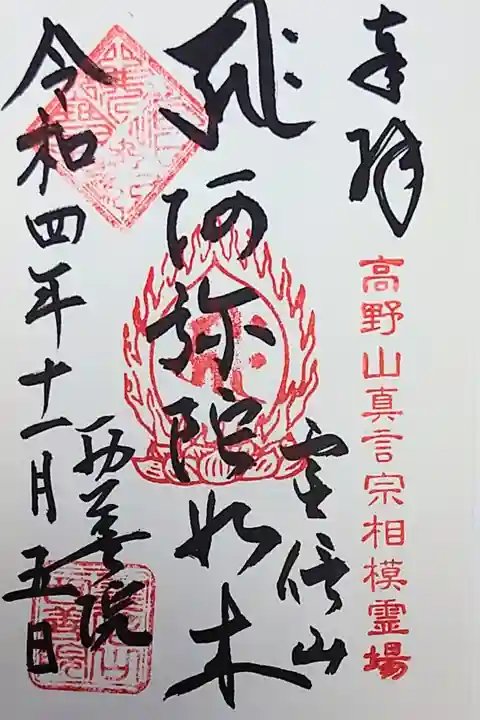 奉拝
高野山真言宗相模霊場
阿弥陀如来
山
西善院
令和四年十一月五日